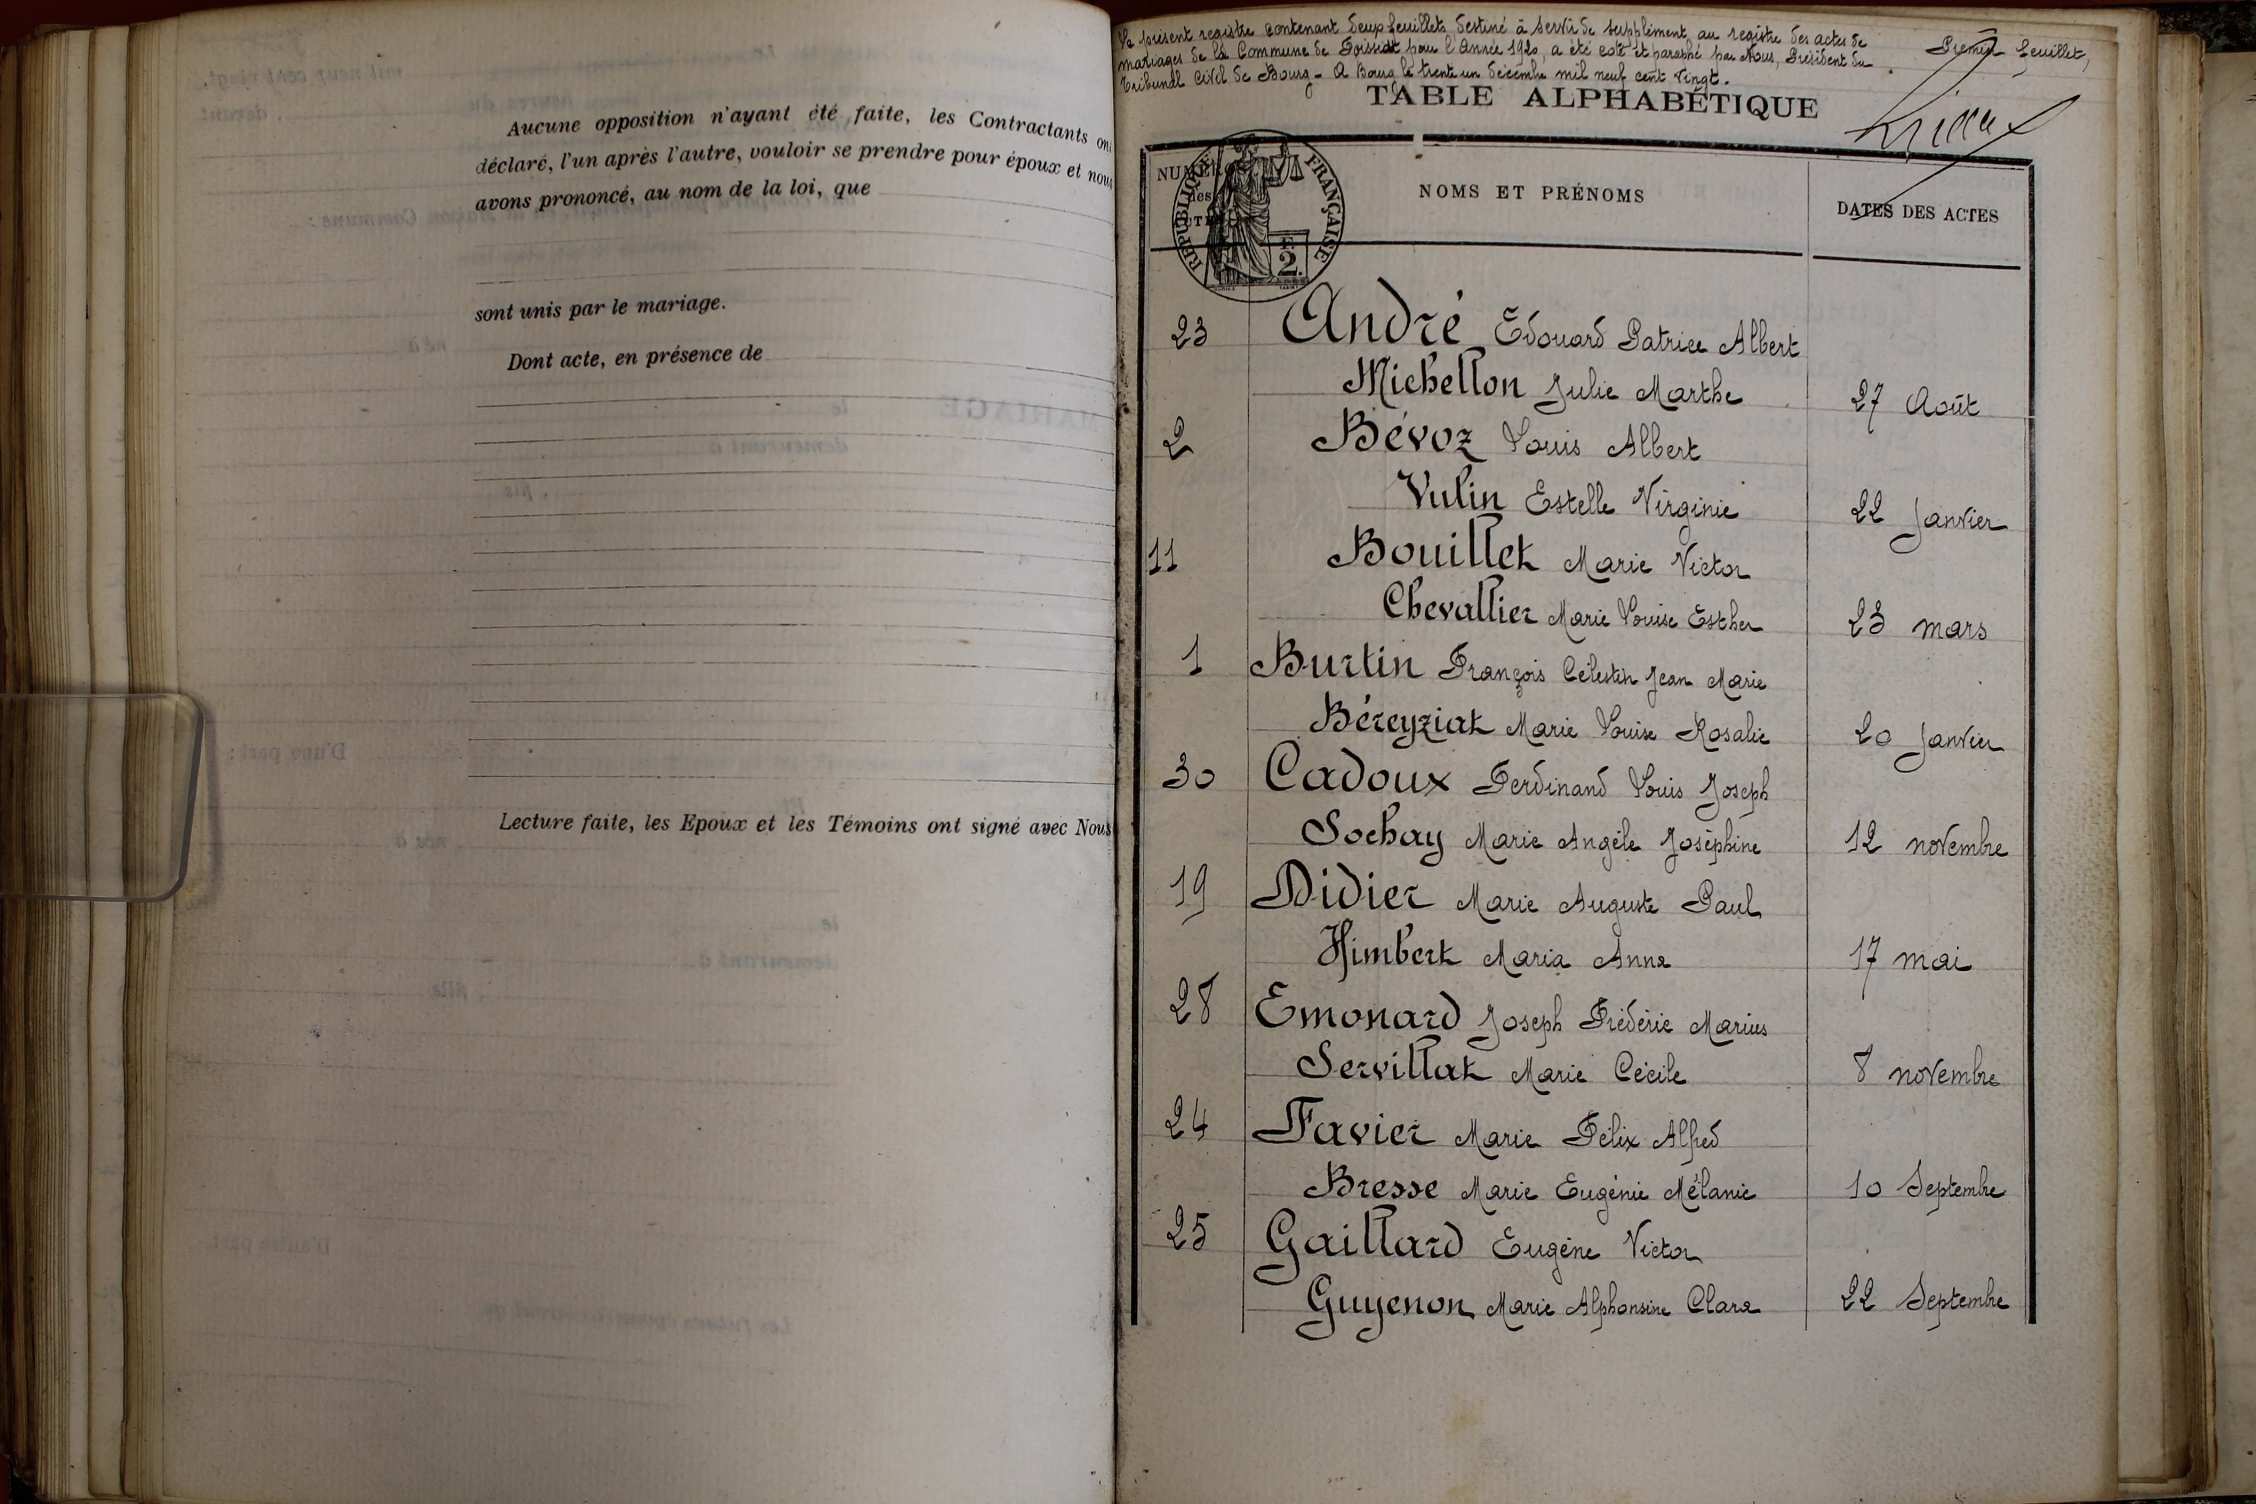 Aucune opposition n'ayant été faite, les Contractants ont
déclaré, l'un après l'autre, vouloir se prendre pour époux et nous
avons prononcé, au nom de la loi, que
sont unis par le mariage.
Dont acte, en présence de
Lecture faite, les Epoux et les Témoins ont signé avec Nous
Le présent registre contenant deux feuillets destiné à servir de supplément au registre des actes de
mariages de la Commune de Foissiat pour l'année 1920, a été coté et paraphé par Nous, Président du
Tribunal Civil de Bourg - A Bourg le trente un décembre mil neuf cent vingt.
Premier feuillet,
TABLE ALPHABÉTIQUE
NUMÉRO
des
NOMS ET PRÉNOMS
DATES DES ACTES
RÉPUBLIQUE FRANÇAISE
2
23 André Edouard Patrice Albert
Michellon Julie Marthe 27 Août
2 Bévoz Louis Albert
Vulin Estelle Virginie 22 Janvier
11 Bouillet Marie Victor
Chevallier Marie Louise Esther 23 mars
1 Burtin François Célestin Jean Marie
Béreyziat Marie Louise Rosalie 20 Janvier
30 Cadoux Ferdinand Louis Joseph
Sochay Marie Angèle Joséphine 12 novembre
19 Didier Marie Auguste Paul
Himbert Maria Anna 17 mai
28 Emonard Joseph Frédéric Marius
Servillat Marie Cécile 8 novembre
24 Favier Marie Félix Alfred
Bresse Marie Eugénie Mélanie 10 Septembre
25 Gaillard Eugène Victor
Guyenon Marie Alphonsine Clara 22 Septembre